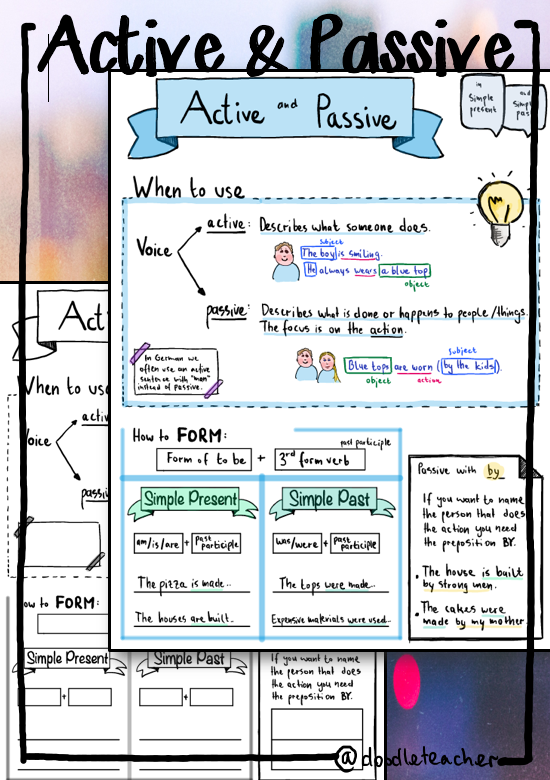 Active & Passive
Active and Passive
in
simple
present
and
simple
past
When to use
Voice
active: Describes what someone does.
subject
The boy is smiling.
He always wears a blue top
object
passive: Describes what is done or happens to people/things.
The focus is on the action.
In German we
often use an active
sentence with "man"
instead of passive.
subject
Blue tops are worn (by the kids).
object
action
How to FORM:
past participle
Form of to be + 3rd form verb
Simple Present
am/is/are + past participle
The pizza is made...
The houses are built...
Simple Past
was/were + past participle
The tops were made...
Expensive materials were used...
Passive with by
If you want to name
the person that does
the action you need
the preposition BY.
• The house is built
by strong men.
• The cakes were
made by my mother.
Act
When to use
Voice
activ
passiv
ow to FORM:
Simple Present
+
Simple Past
+
If you want to name
the person that does
the action you need
the preposition BY.
@doodleteacher